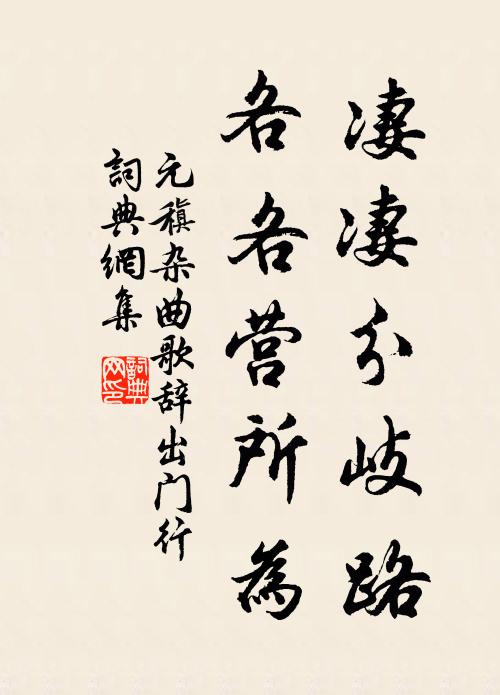 凄凄分歧路
各各营所為
元稹杂曲歌辞出门行
詞典網集
詞典
网印